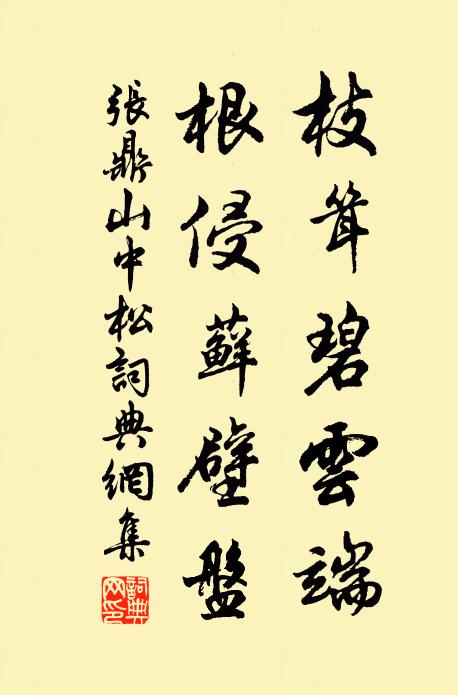 枝聳碧雲端
根侵蘚壁盤
張鼎山中松詞典網集
詞典